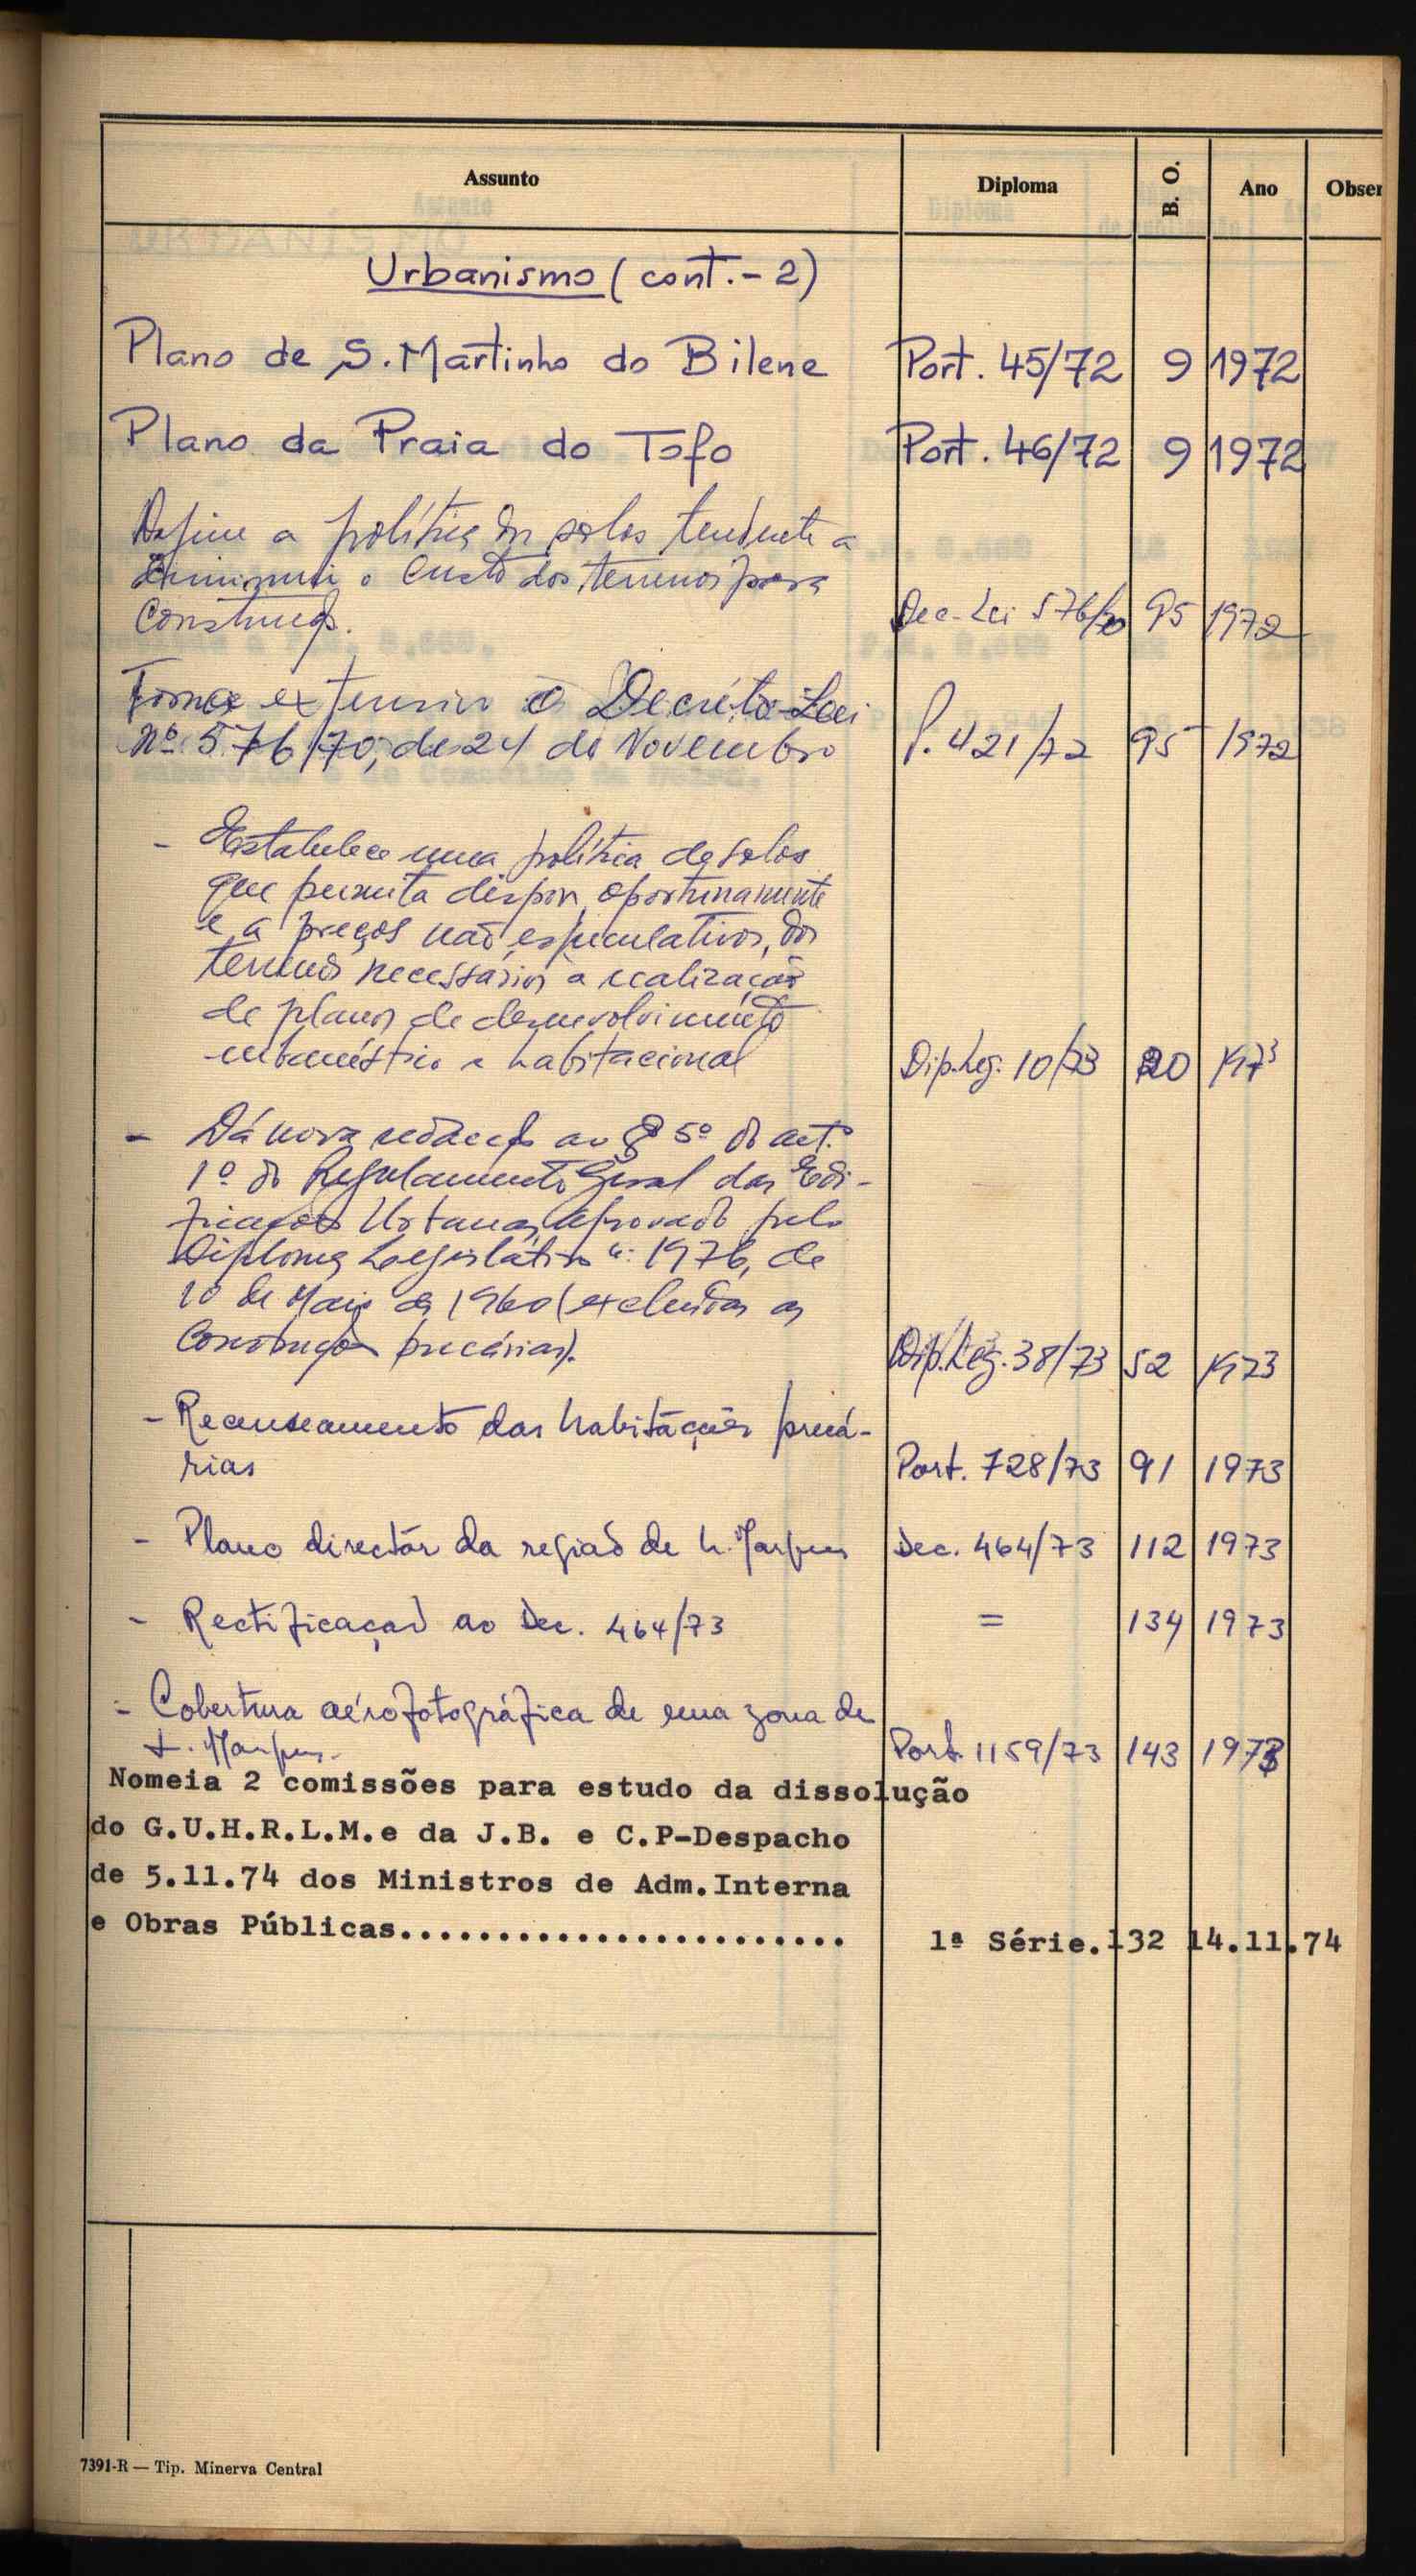 Assunto Diploma B. O. Ano Obser
Urbanismo (cont.- 2)
Plano de S. Martinho do Bilene Port. 45/72 9 1972
Plano da Praia do Tofo Port. 46/72 9 1972
Define a política de solos tendente a
diminuir o custo dos terrenos para
Construção. Dec-Lei 576/70 95 1972
Torna extensivo o Decreto-Lei
nº 576/70, de 24 de Novembro P. 421/72 95 1972
- Estabelece uma política de solos
que permita dispor, oportunamente
e a preços não especulativos, dos
terrenos necessários à realização
de planos de desenvolvimento
urbanístico e habitacional Dip. Leg. 10/73 20 1973
- Dá nova redacção ao § 5º do art.º
1º do Regulamento Geral das Edi-
ficações Urbanas, aprovado pelo
Diploma Legislativo nº 1976, de
10 de Maio de 1960 (excluidas as
Construções precárias). Dip. Leg. 38/73 52 1973
- Recenseamento das habitações precá-
rias Port. 728/73 91 1973
- Plano director da região de L. Marques Dec. 464/73 112 1973
- Rectificação ao Dec. 464/73 = 134 1973
- Cobertura aérofotográfica de uma zona de
L. Marques. Port. 1159/73 143 1973
Nomeia 2 comissões para estudo da dissolução
do G.U.H.R.L.M.e da J.B. e C.P-Despacho
de 5.11.74 dos Ministros de Adm.Interna
e Obras Públicas....................... 1ª Série.132 14.11.74
7391-R — Tip. Minerva Central